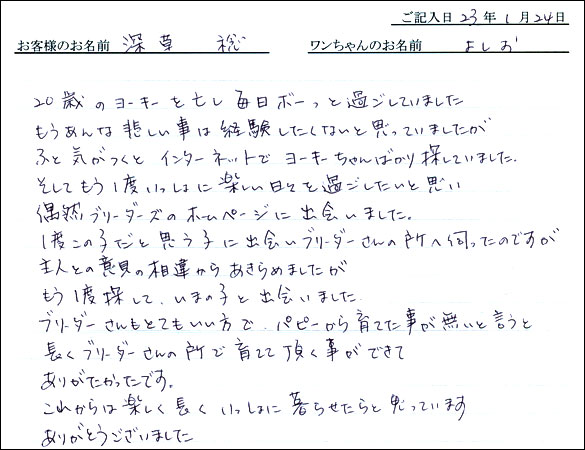 ご記入日 23年 1月 24日
お客様のお名前 深草 総 ワンちゃんのお名前 よしお
20歳のヨーキーを亡し毎日ボーっと過ごしていました
もうあんな悲しい事は経験したくないと思っていましたが
ふと気がつくとインターネットでヨーキーちゃんばかり探していました.
そしてもう1度いっしょに楽しい日々を過ごしたいと思い
偶然ブリーダーズのホームページに出会いました。
1度この子だと思う子に出会いブリーダーさんの所へ伺ったのですが
主人との意見の相違からあきらめましたが
もう1度探して、いまの子と出会いました
ブリーダーさんもとてもいい方で、パピーから育てた事が無いと言うと
長くブリーダーさんの所で育てて頂く事ができて
ありがたかったです。
これからは楽しく長くいっしょに暮らせたらと思っています
ありがとうございました